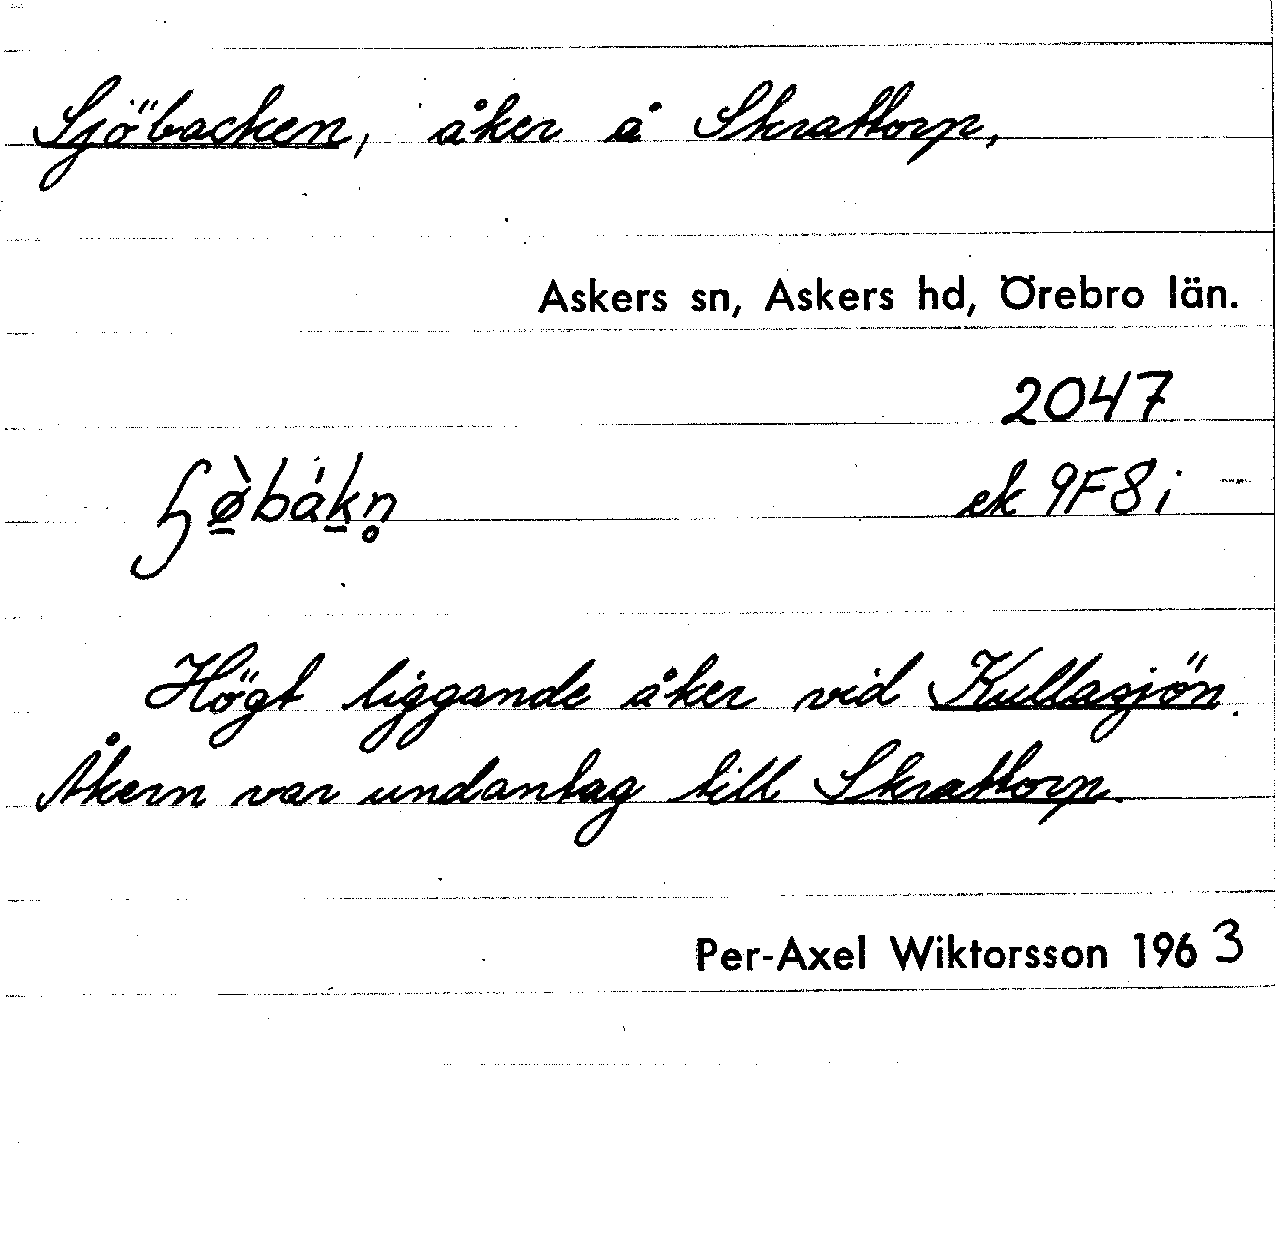 Sjöbacken, åker å Skrattorp,
Askers sn, Askers hd, Örebro län.
2047
ɧø̠̀bák̠n̥
ek 9F8i
Högt liggande åker vid Kullasjön.
Åkern var undantag till Skrattorp.
Per-Axel Wiktorsson 1963